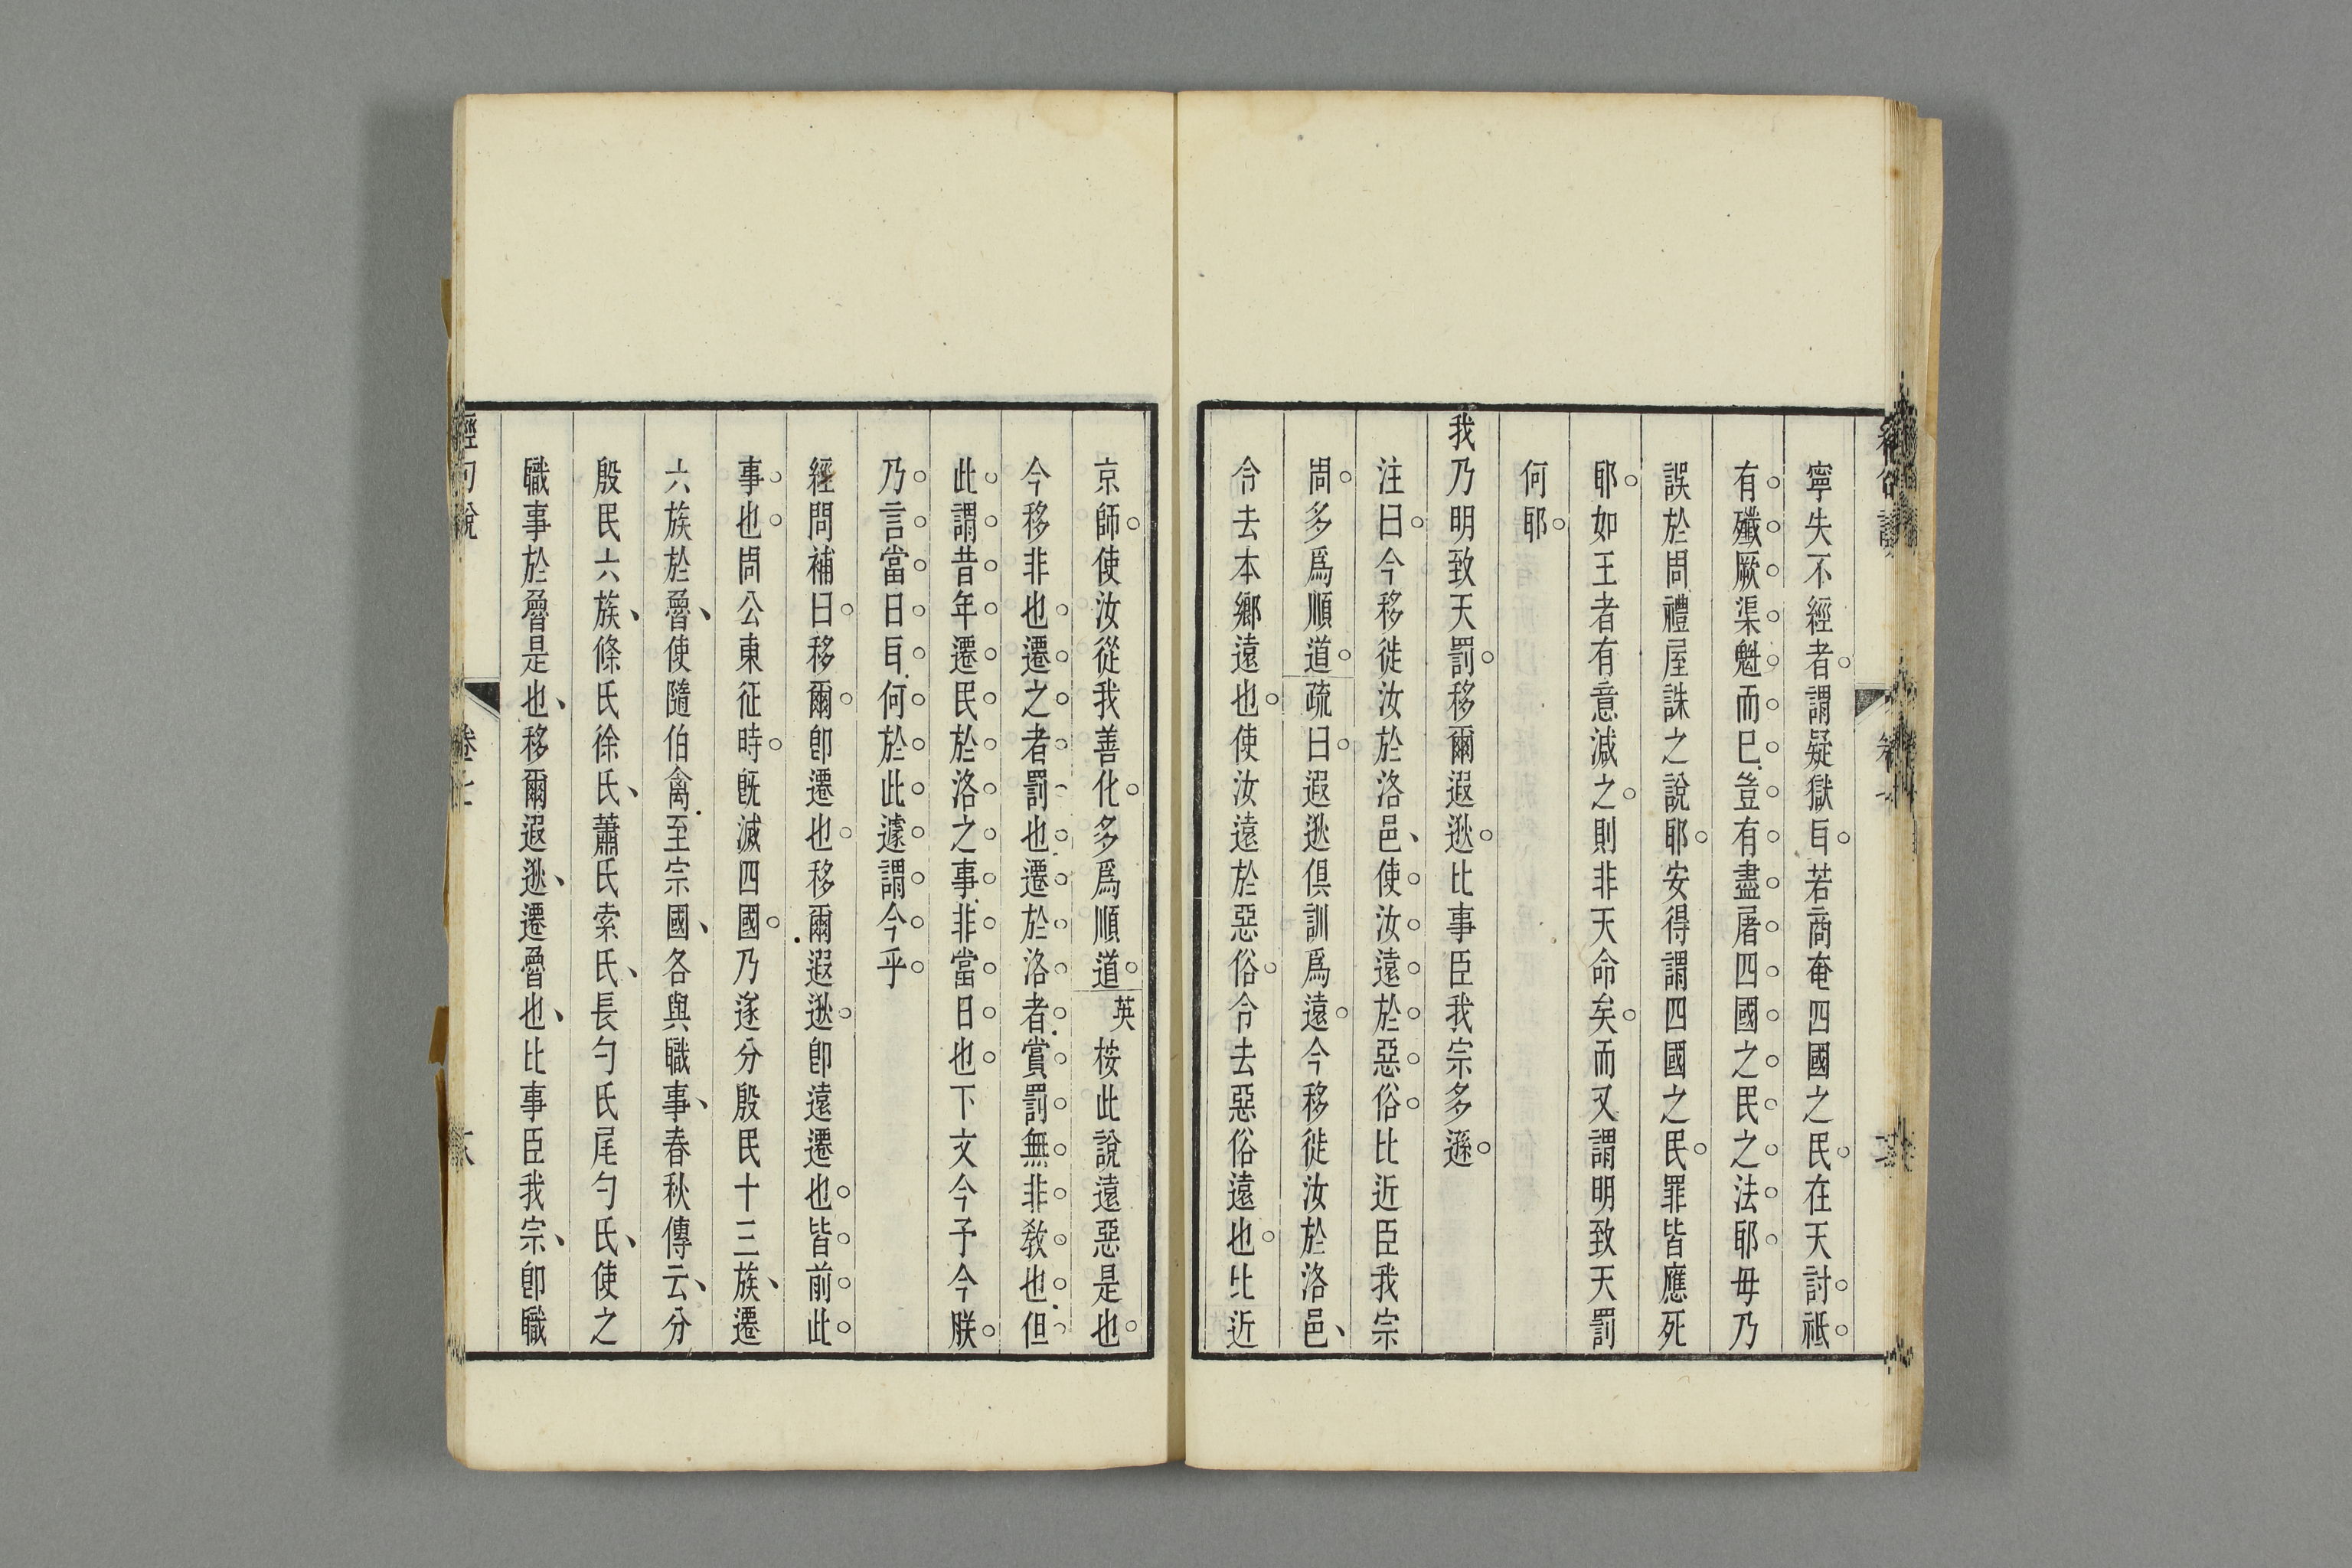 寧失不經者。謂疑獄㠯。若商奄四國之民。在天討。祗。
有。殲。厥。渠。魁。而。巳。豈。有。盡。屠。四。國。之。民。之。法。耶。毋乃
誤於周禮屋誅之說耶。安得謂四國之民。罪皆應死
耶。如王者有意減之。則非天命矣。而又謂明致天罰
何耶。
我乃明致天罰。移爾遐逖。比事臣我宗多遜。
注曰。今移徙汝於洛邑、使。汝。遠。於。惡。俗。比近臣我宗
周。多爲順道。疏曰。遐逖俱訓爲遠。今移徙汝於洛邑、
令去本鄉遠也。使汝遠於惡俗。令去惡俗遠也。比近
京師。使汝從我善化。多爲順道。英桉此說遠惡是也。
今移非也。遷。之。者。罰。也。遷。於。洛。者。賞。罰。無。非。敎。也。但。
此。謂。昔。年。遷。民。於。洛。之。事。非。當。日。也。下文今予今朕。
乃。言。當。日。㠯。何。於。此。遽。謂。今。乎。
經問補曰。移爾。卽遷也。移爾遐逖。卽遠遷也。皆。前。此。
事。也。周公東征時。旣滅四國。乃遂分殷民十三族、遷
六族於魯、使隨伯禽至宗國、各與職事、春秋傳云、分
殷民六族、條氏徐氏、蕭氏索氏、長勺氏尾勺氏、使之
職事於魯是也、移爾遐逖、遷魯也、比事臣我宗、卽職